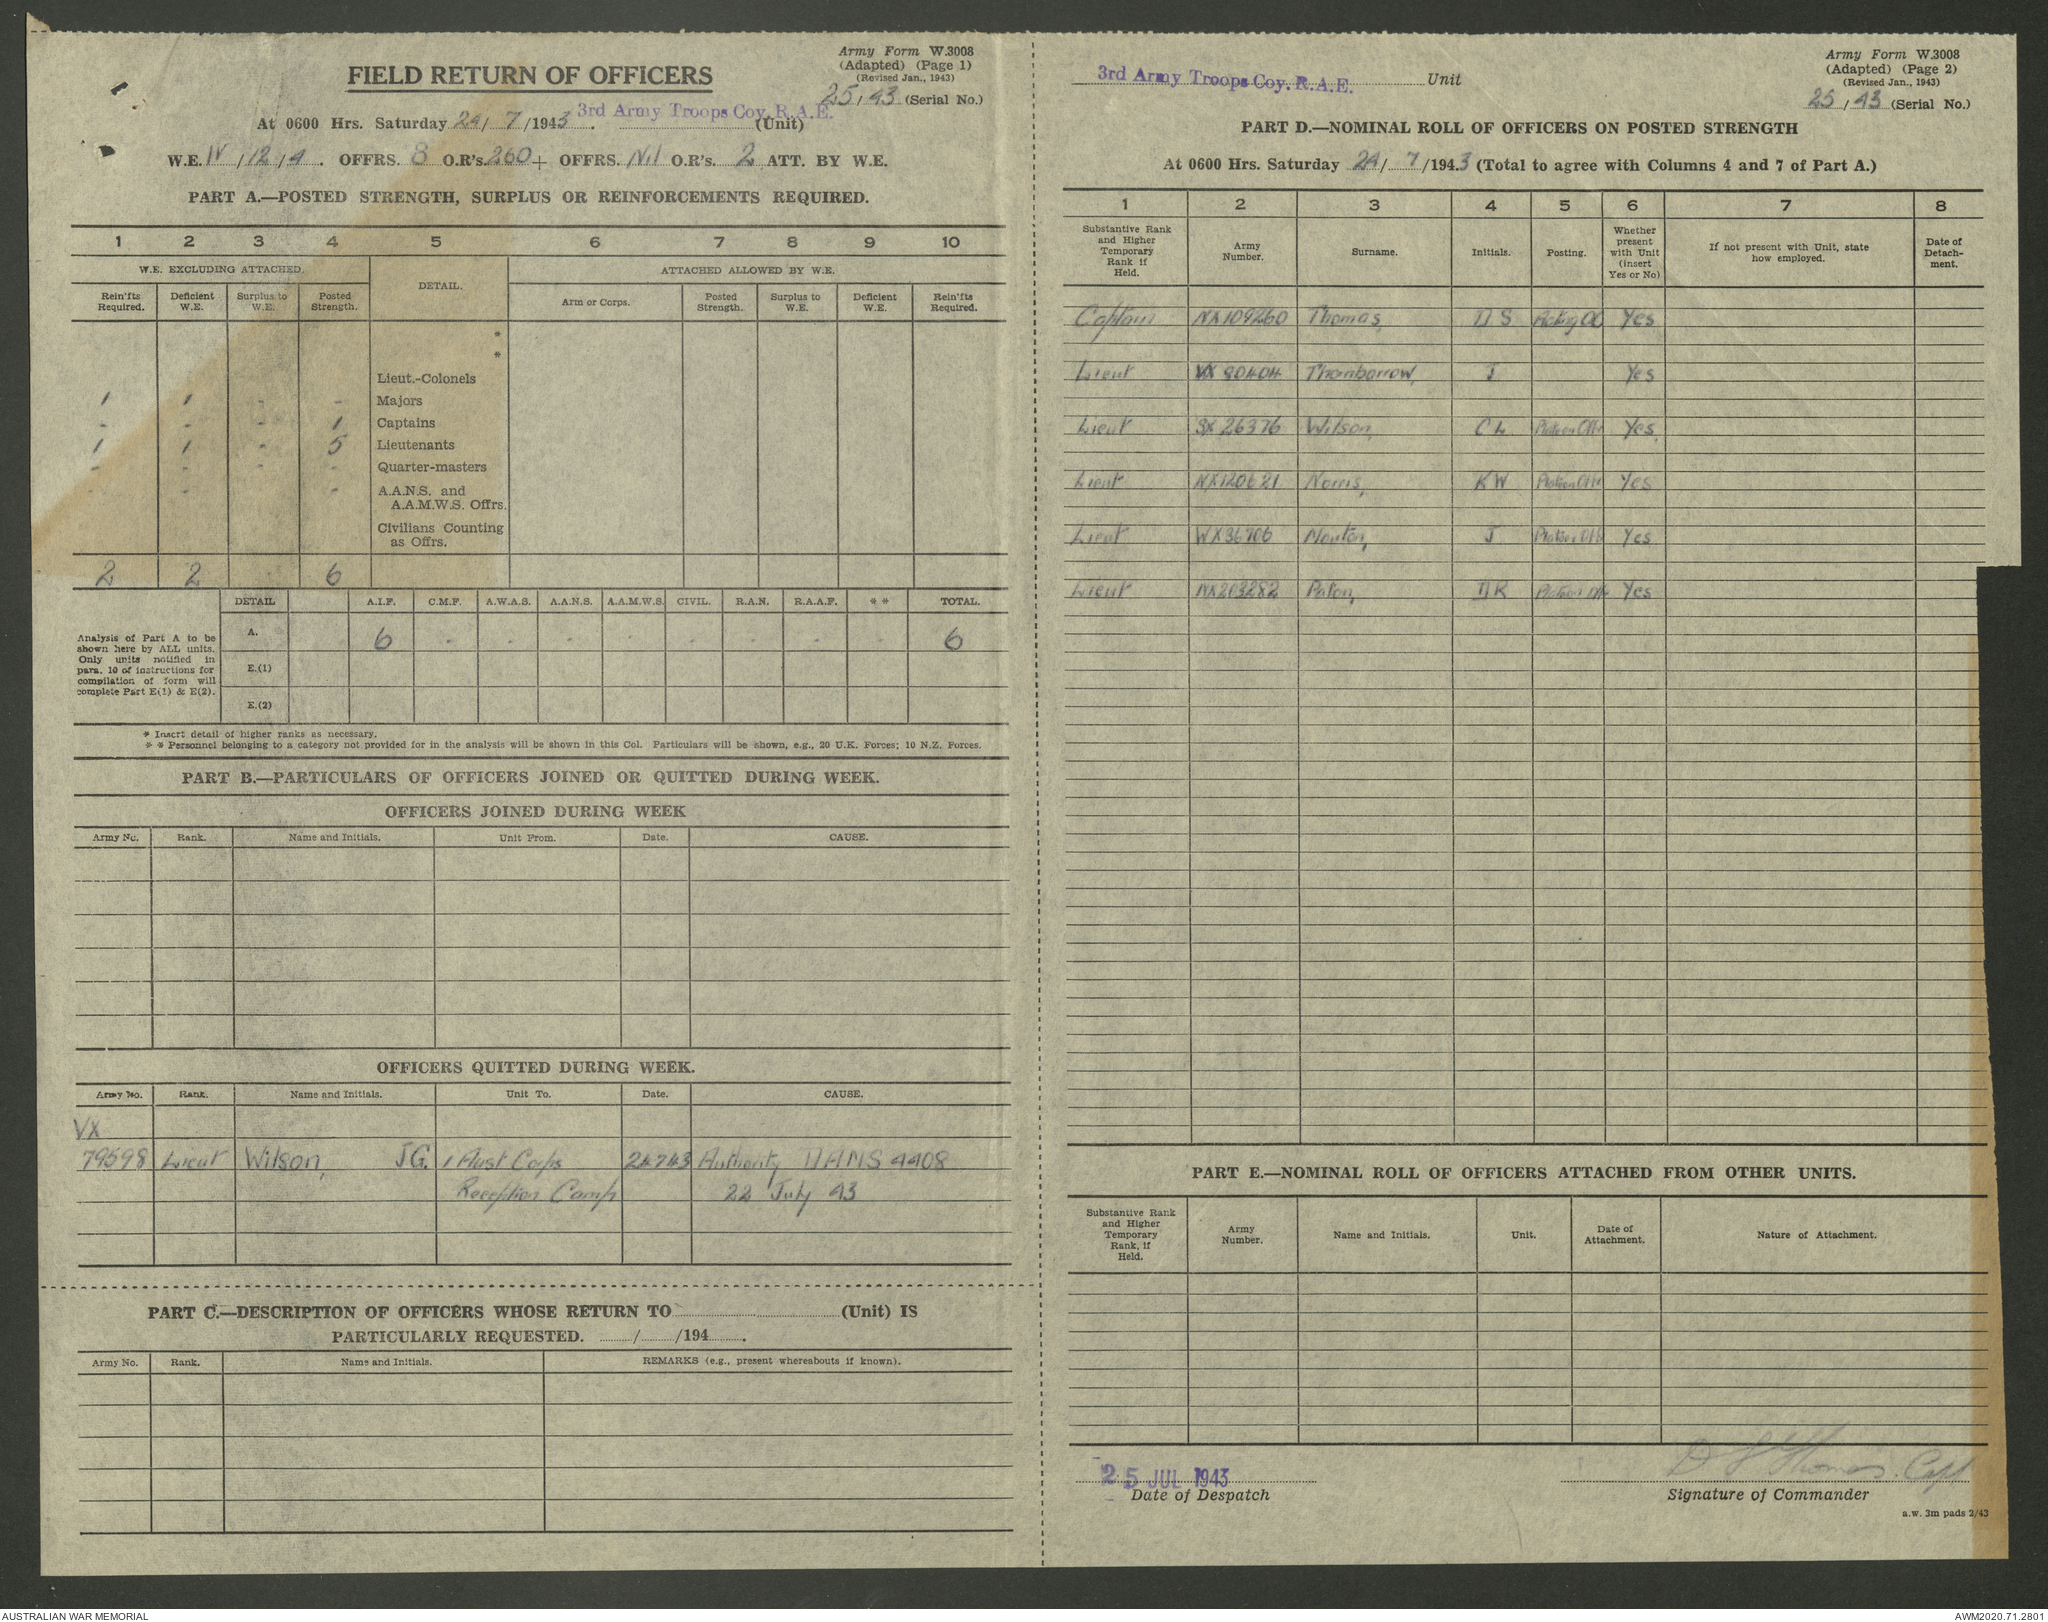 Army Form W.3008
(Adapted) (Page 1)
(Revised Jan., 1943)
FIELD RETURN OF OFFICERS
25/43 (Serial No.)
At 0600 Hrs. Saturday 24/7/1943. 3rd Army Troops Coy. R.A.E. (Unit)
W.E. IV/12/4. OFFRS. 8 O.R's. 260 + OFFRS. Nil O.R's. 2 ATT. BY W.E.
PART A.—POSTED STRENGTH, SURPLUS OR REINFORCEMENTS REQUIRED.
1 2 3 4 5 6 7 8 9 10
W.E. EXCLUDING ATTACHED. DETAIL. ATTACHED ALLOWED BY W.E.
Rein'fts Required. Deficient W.E. Surplus to W.E. Posted Strength. Arm or Corps. Posted Strength. Surplus to W.E. Deficient W.E. Rein'fts Required.
*
*
Lieut.-Colonels
1 1 - - Majors
- - - 1 Captains
1 1 - 5 Lieutenants
- - - - Quarter-masters
- - - - A.A.N.S. and
A.A.M.W.S. Offrs.
Civilians Counting
as Offrs.
2 2 . 6
DETAIL A.I.F. C.M.F. A.W.A.S. A.A.N.S. A.A.M.W.S. CIVIL. R.A.N. R.A.A.F. * * TOTAL.
Analysis of Part A to be
shown here by ALL units.
Only units notified in
para. 10 of instructions for
compilation of form will
complete Part E(1) & E(2).
A. 6 - - - - - - - - 6
E.(1)
E.(2)
* Insert detail of higher ranks as necessary.
* * Personnel belonging to a category not provided for in the analysis will be shown in this Col. Particulars will be shown, e.g., 20 U.K. Forces; 10 N.Z. Forces.
PART B.—PARTICULARS OF OFFICERS JOINED OR QUITTED DURING WEEK.
OFFICERS JOINED DURING WEEK
Army No. Rank. Name and Initials. Unit From. Date. CAUSE.
OFFICERS QUITTED DURING WEEK.
Army No. Rank. Name and Initials. Unit To. Date. CAUSE.
VX
79598 Lieut Wilson, JG. 1 Aust Corps 24743 Authority DAMS 4408
Reception Camp 22 July 43
PART C.—DESCRIPTION OF OFFICERS WHOSE RETURN TO (Unit) IS
PARTICULARLY REQUESTED. / /194 .
Army No. Rank. Name and Initials. REMARKS (e.g., present whereabouts if known).
Army Form W.3008
(Adapted) (Page 2)
(Revised Jan., 1943)
3rd Army Troops Coy. R.A.E. Unit
25/43 (Serial No.)
PART D.—NOMINAL ROLL OF OFFICERS ON POSTED STRENGTH
At 0600 Hrs. Saturday 24/7/1943 (Total to agree with Columns 4 and 7 of Part A.)
1 2 3 4 5 6 7 8
Substantive Rank and Higher Temporary Rank if Held. Army Number. Surname. Initials. Posting. Whether present with Unit (insert Yes or No) If not present with Unit, state how employed. Date of Detachment.
Captain NX109260 Thomas, D S Acting OC Yes
Lieut VX 80404 Thornborrow, J Yes
Lieut SX 26376 Wilson, C L Platoon Offr Yes
Lieut NX120621 Norris, K W Platoon Offr Yes
Lieut WX36706 J Platoon Offr Yes
Lieut NX203282 Paton, D R Platoon Offr Yes
PART E.—NOMINAL ROLL OF OFFICERS ATTACHED FROM OTHER UNITS.
Substantive Rank and Higher Temporary Rank, if Held. Army Number. Name and Initials. Unit. Date of Attachment. Nature of Attachment.
25 JUL 1943 D S Thomas. Capt
Date of Despatch Signature of Commander
a.w. 3m pads 2/43
AUSTRALIAN WAR MEMORIAL AWM2020.71.2801